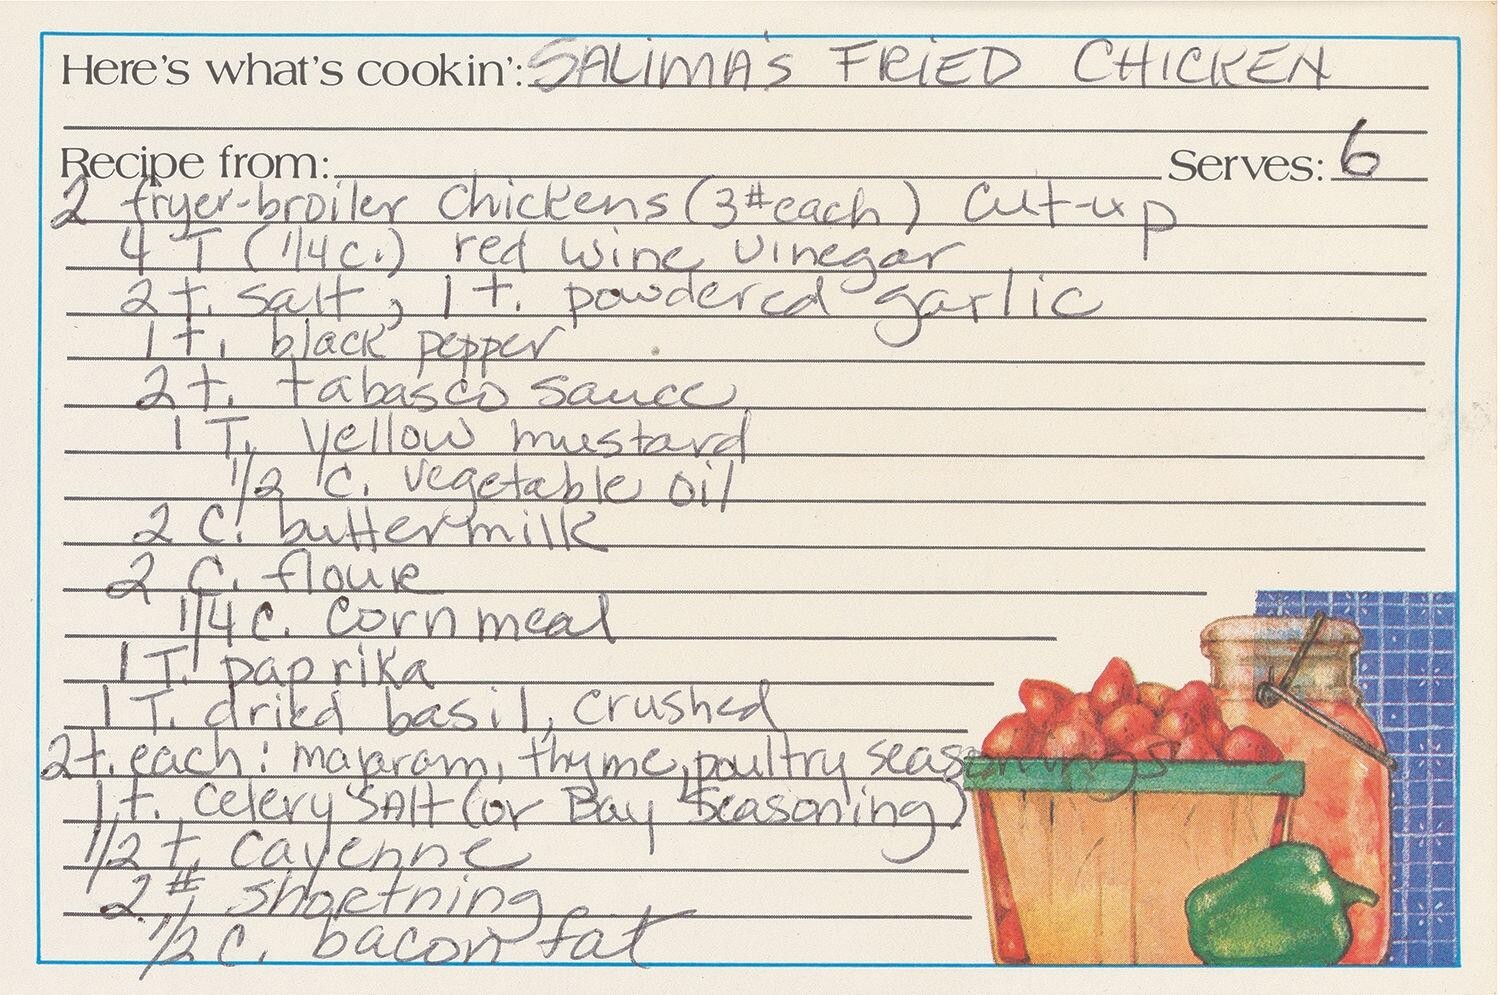 Here's what's cookin': SALIMA'S FRIED CHICKEN
Recipe from: Serves: 6
2 fryer-broiler Chickens (3# each) Cut-up
4 T (1/4 c.) red wine vinegar
2 t. salt, 1 t. powdered garlic
1 t. black pepper
2 t. tabasco sauce
1 T. yellow mustard
1/2 C. vegetable oil
2 C. buttermilk
2 C. flour
1/4 C. Corn meal
1 T. paprika
1 T. dried basil, crushed
2 t. each: majaram, thyme, poultry seasonings
1 t. Celery SAlt (or Bay Seasoning)
1/2 t. Cayenne
2 # shortning
1/2 C. bacon fat